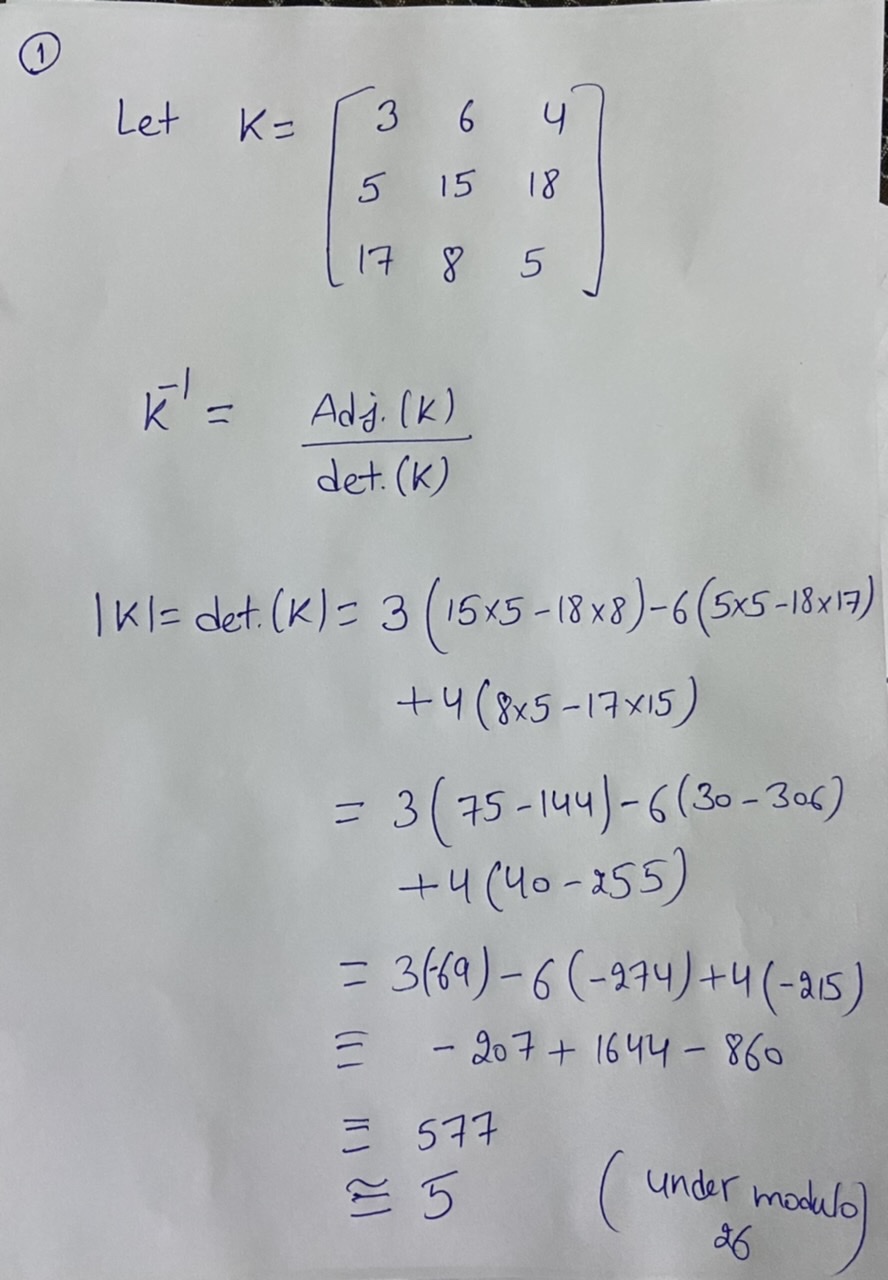 1
Let K = [ 3 6 4
5 15 18
17 8 5 ]
K⁻¹ = Adj. (K)
det. (K)
|K| = det. (K) = 3 (15×5 - 18×8) - 6 (5×5 - 18×17)
+ 4 (8×5 - 17×15)
= 3 (75 - 144) - 6 (30 - 306)
+ 4 (40 - 255)
= 3(-69) - 6 (-274) + 4 (-215)
≡ - 207 + 1644 - 860
≡ 577
≅ 5 (under modulo
26)